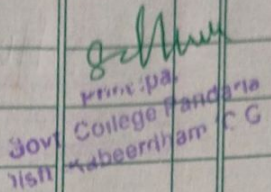 Principal
Govt College Pandaria
Distt Kabeerdham C G